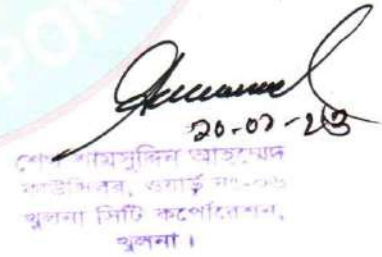 ২০-০১-২৩
শেখ শামসুদ্দিন আহম্মেদ
কাউন্সিলর, ওয়ার্ড নং-০৬
খুলনা সিটি কর্পোরেশন,
খুলনা।